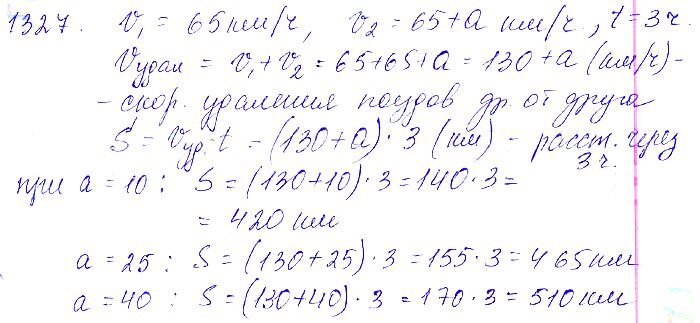 1327. v₁ = 65 км/ч, v₂ = 65+a км/ч., t=3ч.
Vудал = v₁+v₂ = 65+65+a = 130+a (км/ч) -
- скор. удаления поездов др. от друга
S = vуд·t = (130+a)·3 (км) - расст. через 3 ч.
при a = 10 : S = (130+10)·3 = 140·3 =
= 420 км
a = 25 : S = (130+25)·3 = 155·3 = 465 км
a = 40 : S = (130+40)·3 = 170·3 = 510 км